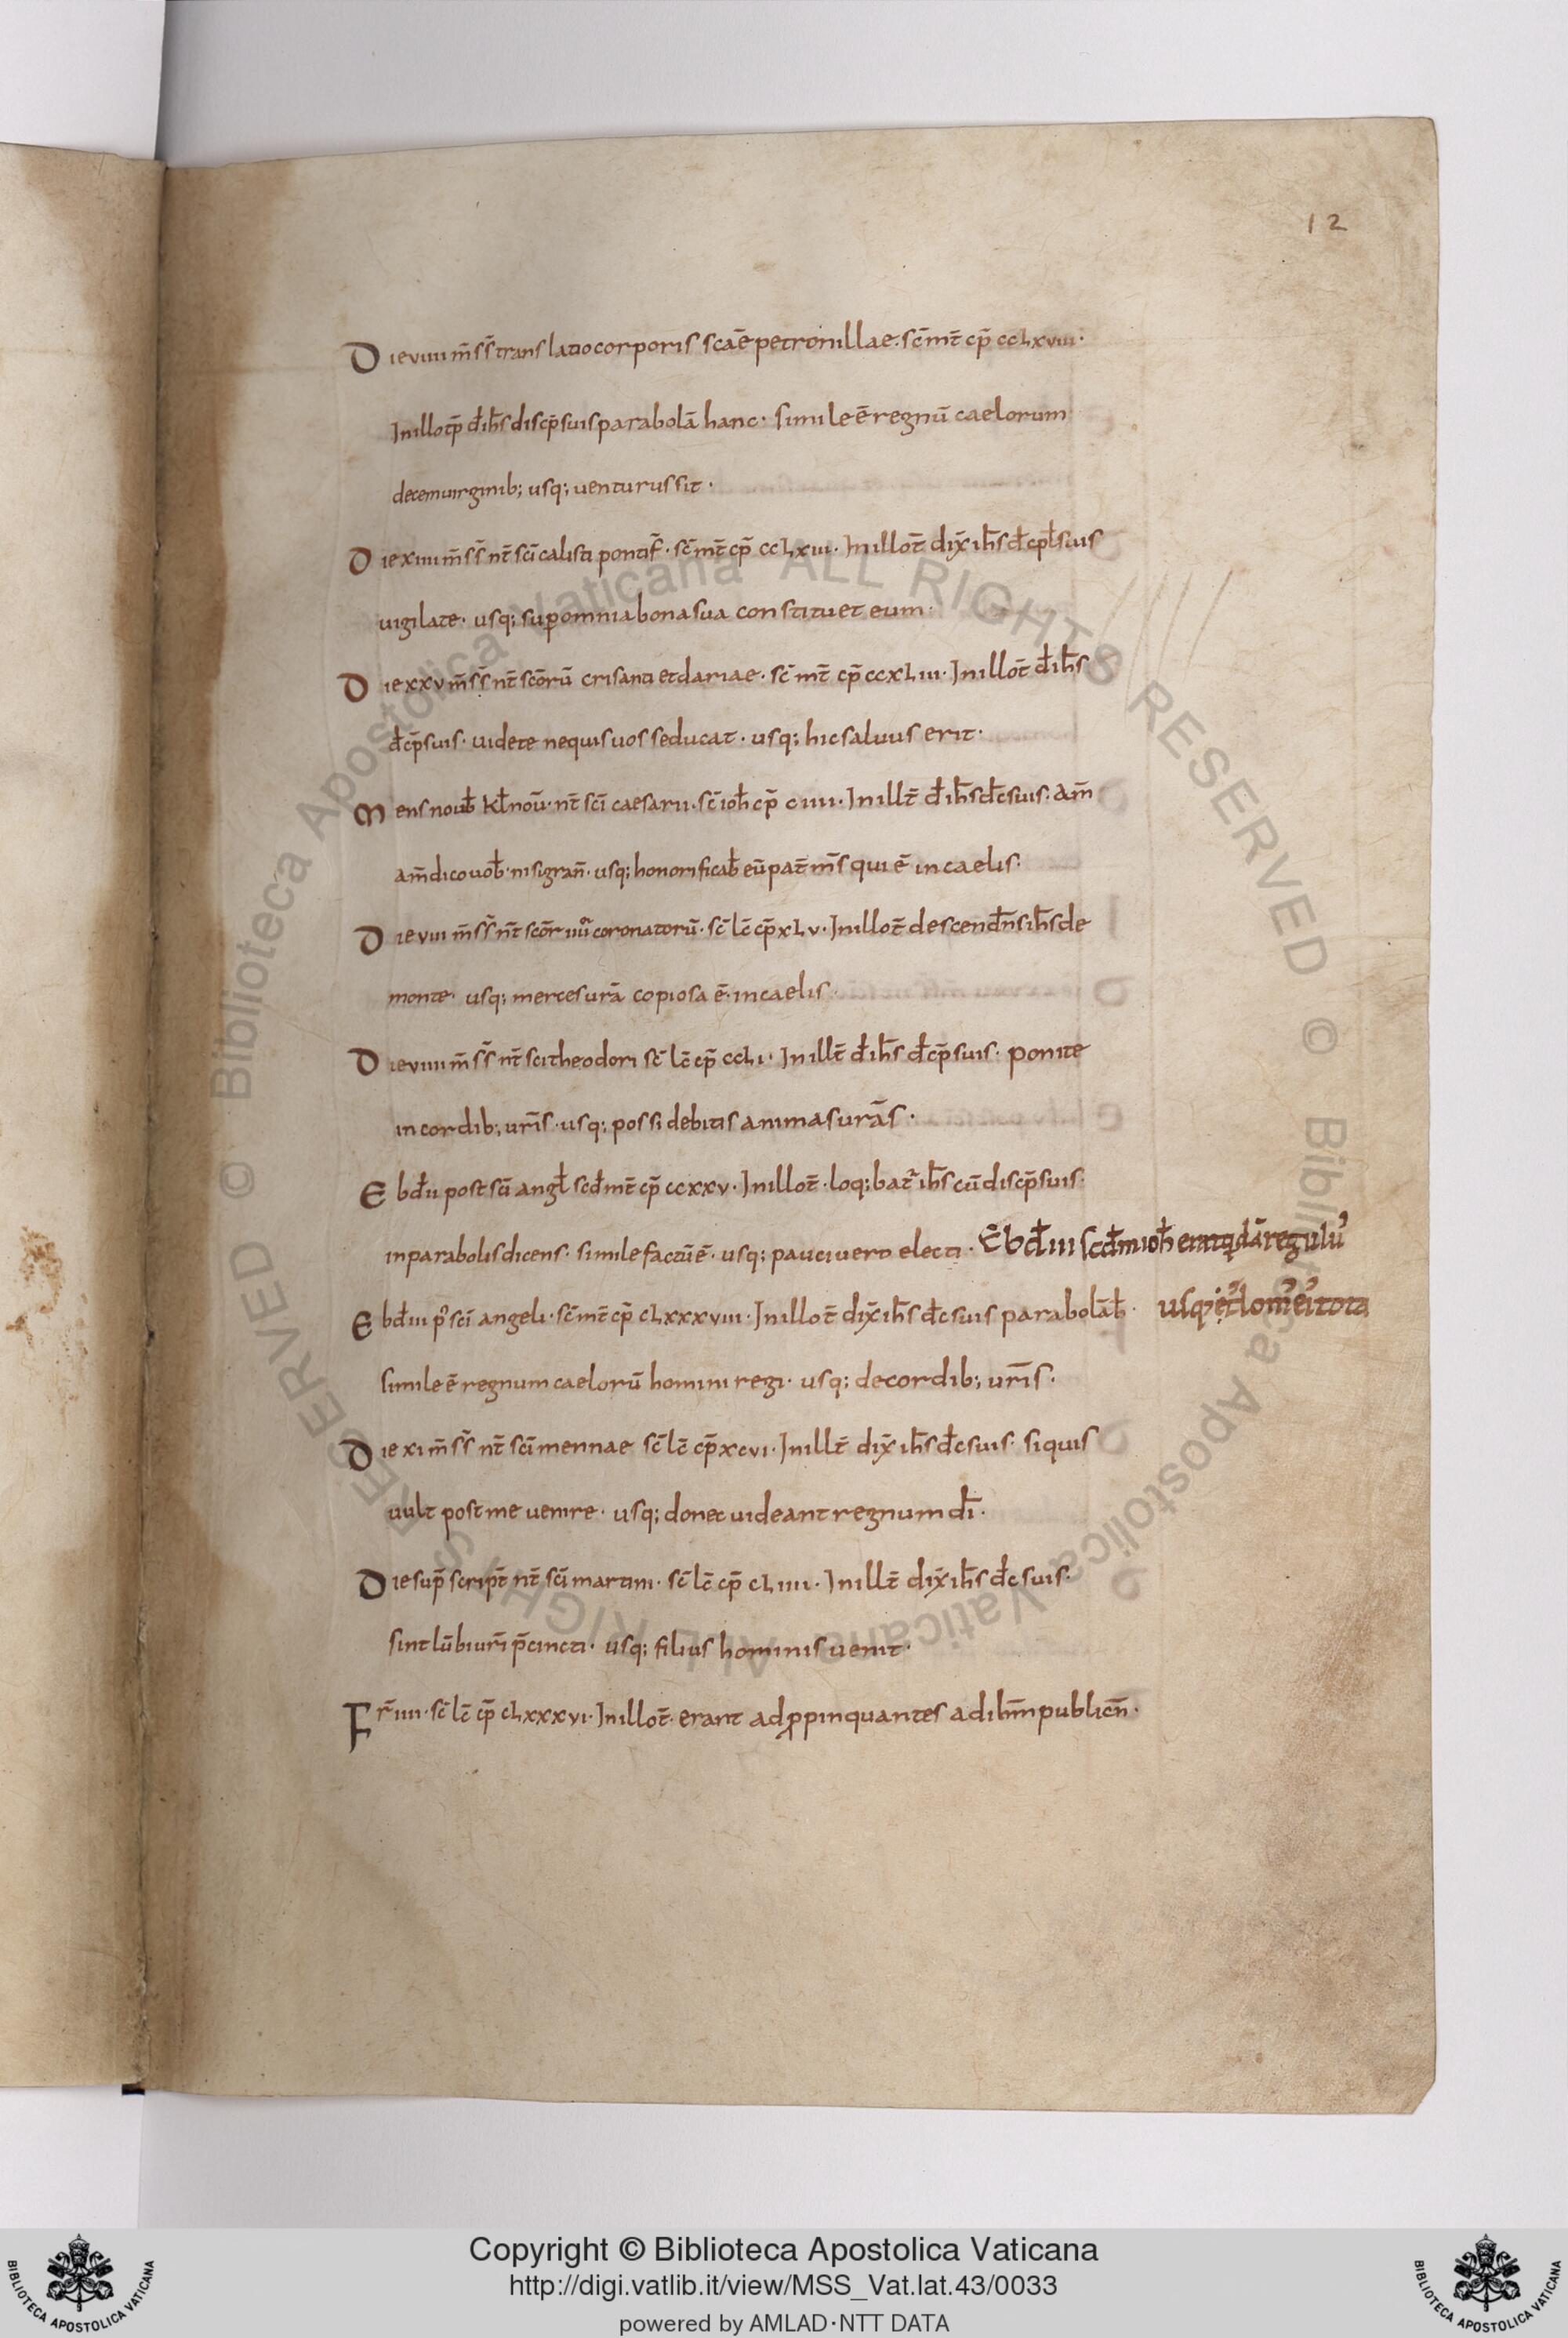 12
Die viiii m̄ s̄s̄ translatio corporis scāe petronillae. sc̄ mt̄ cp̄ ccLxviii·
In illo tp̄ đ ih̄s discp̄ suis parabolā hanc· simile ē regnū caelorum
decem uirginib; usq; uenturus sit·
Die xiiii m̄ s̄s̄ nt̄ sc̄i calisti pontif̄· sc̄ mt̄ cp̄ ccLxiii· In illo t̄ dix̄ ih̄s
uigilate· usq; sup̄ omnia bona sua constituet eum·
Die xxv m̄ s̄s̄ nt̄ sc̄orū crisanti et dariae· sc̄ mt̄ cp̄ ccxLiii· In illo t̄ đ ih̄s
đcp̄ suis· uidete nequis uos seducat· usq; hic saluus erit·
Mens nouƀ kł nou̅· nt̄ sc̄i caesarii· sc̄ ioh̄ cp̄ ciiii· In illt̄ đ ih̄s đc suis· am̄
am̄ dico uoƀ· nisi gran̄· usq; honorificaƀ eū pat̄ m̄s qui ē in caelis·
Die viii m̄ s̄s̄ nt̄ sc̄or iiiior coronatorū· sc̄ lc̄ cp̄ xLv· In illo t̄ descendn̄s ih̄s de
monte· usq; merces urā copiosa ē in caelis·
Die viiii m̄ s̄s̄ nt̄ sc̄i theodori sc̄ lc̄ cp̄ ccLi· In illt̄ đ ih̄s đcp̄ suis· ponite
in cordib; ur̄is· usq; possidebitis animas urās·
Ebđ ii post sc̄i angł scđ mt̄ cp̄ ccxxv· In illo t̄· loq;bat̄ ih̄s cū discp̄ suis·
in parabolis dicens· simile factū ē· usq; pauci uero electi· Ebđ iii scđm ioh̄ erat qdā regulu᾽
Ebđ iii p᾽ sc̄i angeli· sc̄ mt̄ cp̄ cLxxxviii· In illo t̄ dix̄ ih̄s đc suis parabolā h̄· usq
simile ē regnum caelorū homini regi· usq; de cordib; ur̄is·
Die xi m̄ s̄s̄ nt̄ sc̄i mennae sc̄ lc̄ cp̄ xcvi· In illt̄ dix̄ ih̄s đc suis· siquis
uult post me uenire· usq; donec uideant regnum dī·
Die sup̄ script̄ nt̄ sc̄i martini· sc̄ lc̄ cp̄ cLiiii· In illt̄ dix̄ ih̄s đc suis·
sint lūbi ur̄i p̄cincti· usq; filius hominis uenit·
Fr̄ iiii· sc̄ lc̄ cp̄ cLxxxvi· In illo t̄· erant adp̱pinquantes ad ihm̄ publicn̄·
Copyright © Biblioteca Apostolica Vaticana
http://digi.vatlib.it/view/MSS_Vat.lat.43/0033
powered by AMLAD·NTT DATA
BIBLIOTECA APOSTOLICA VATICANA
BIBLIOTECA APOSTOLICA VATICANA
© Biblioteca Apostolica Vaticana ALL RIGHTS RESERVED © Biblioteca Apostolica Vaticana ALL RIGHTS RESERVED